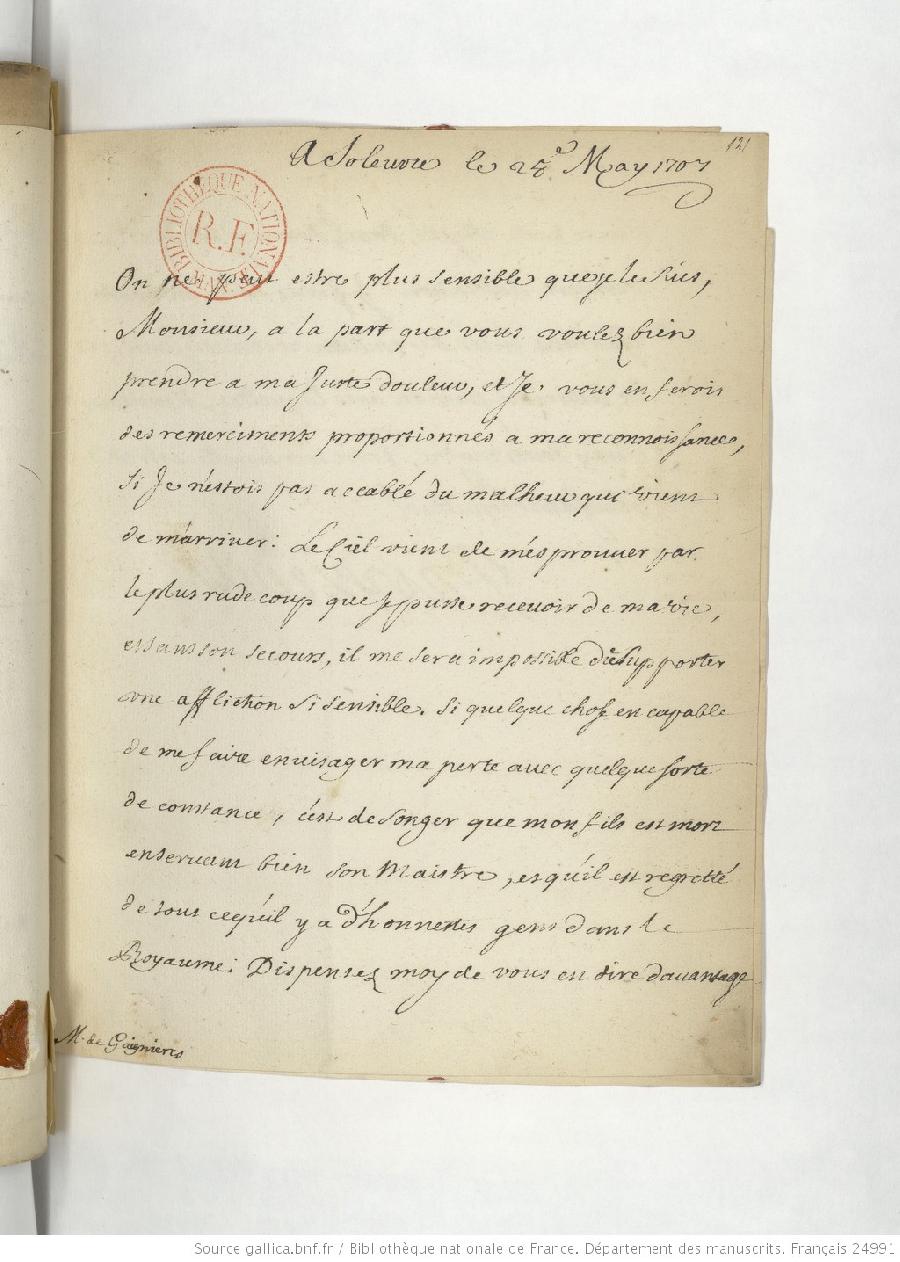 121
A Soleure le 28e May 1707
BIBLIOTHÈQUE NATIONALE
R.F.
MANUSCRITS
On ne peut estre plus sensible que je le suis,
Monsieur, a la part que vous voulez bien
prendre a ma Juste douleur, et Je vous en ferois
des remerciments proportionnés a ma reconnoissance,
si Je n'estois pas accablé du malheur qui vient
de m'arriver: Le Ciel vient de m'esprouver par
le plus rude coup que Je pusse recevoir de ma vie,
et sans son secours, il me sera impossible de supporter
une affliction si sensible. Si quelque chose en capable
de me faire envisager ma perte avec quelque sorte
de constance, c'est de songer que mon fils est mort
en servant bien son Maistre, et qu'il est regretté
de tous ce qu'il y a d'honnettes gens dans le
Royaume: Dispensez moy de vous en dire davantage
M. de Gaignieres
Source gallica.bnf.fr / Bibliothèque nationale de France. Département des manuscrits. Français 24991